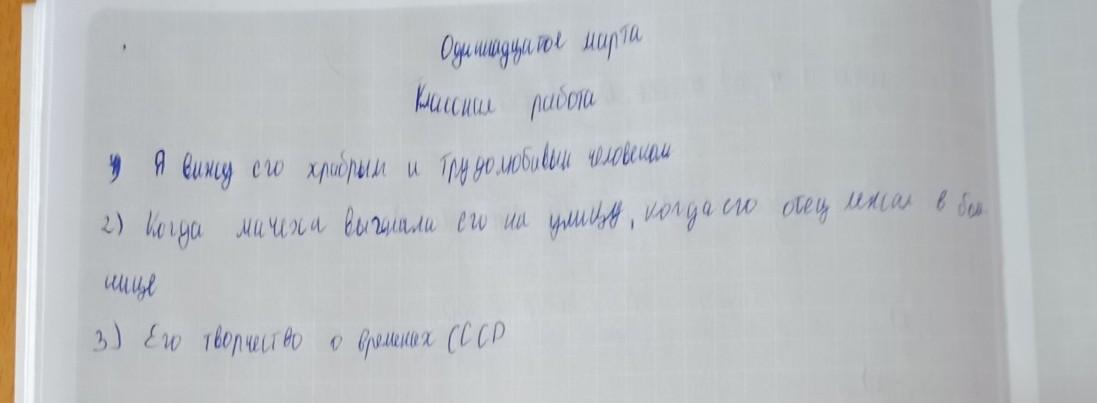 Одиннадцатое марта
Классная работа
1) Я вижу его храбрым и трудолюбивым человеком
2) Когда мачеха выгнала его на улицу, когда его отец лежал в боль
нице
3) Его творчество о временах СССР